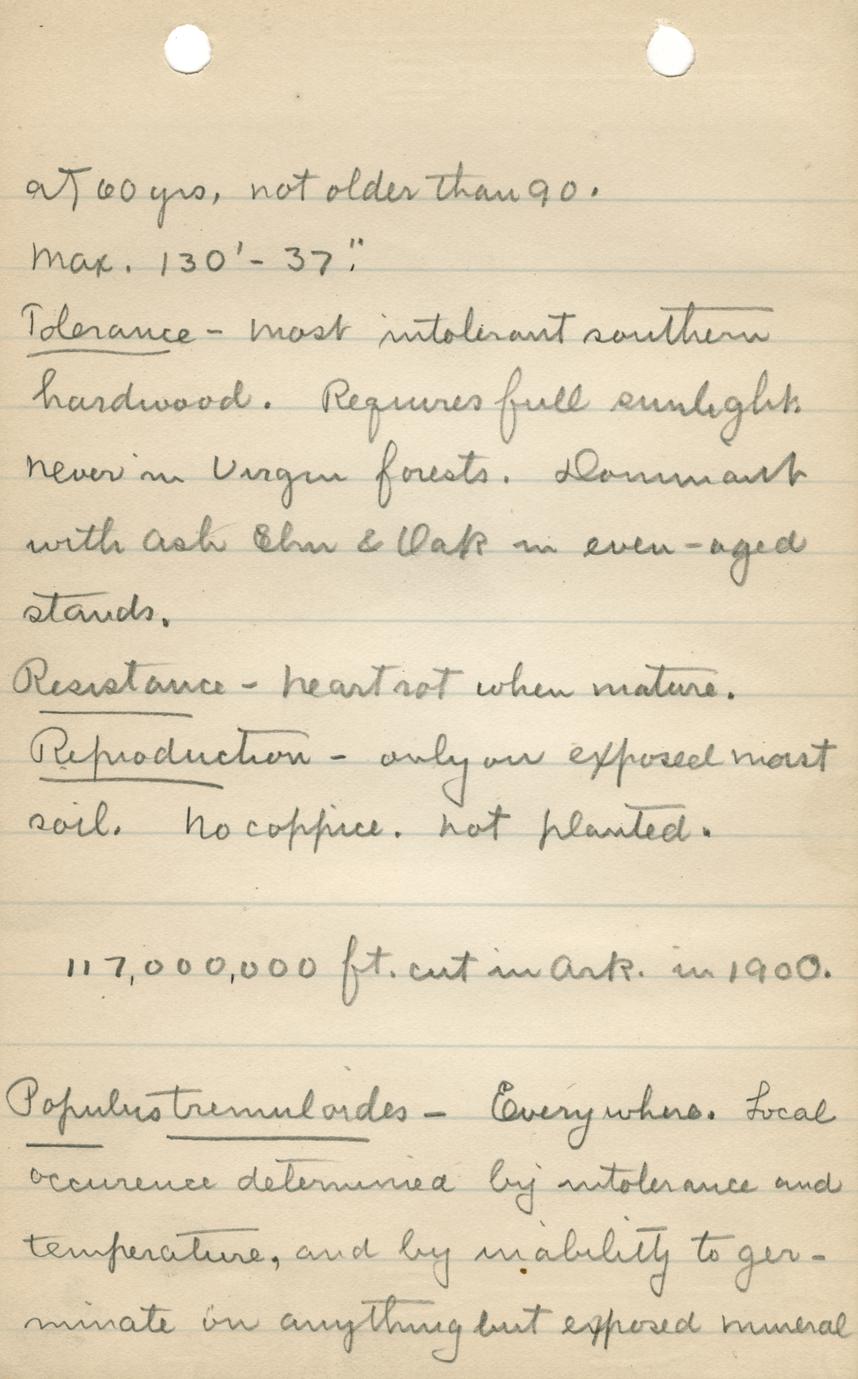 at 60 yrs, not older than 90.
Max. 130' - 37".
Tolerance - most intolerant southern
hardwood. Requires full sunlight
never in Virgin forests. Dominant
with Ash Elm & Oak in even-aged
stands.
Resistance - heart rot when mature.
Reproduction - only on exposed moist
soil. No coppice. not planted.
117,000,000 ft. cut in Ark. in 1900.
Populus tremuloides - Everywhere. Local
occurence determined by intolerance and
temperature, and by inability to ger-
minate on anything but exposed mineral